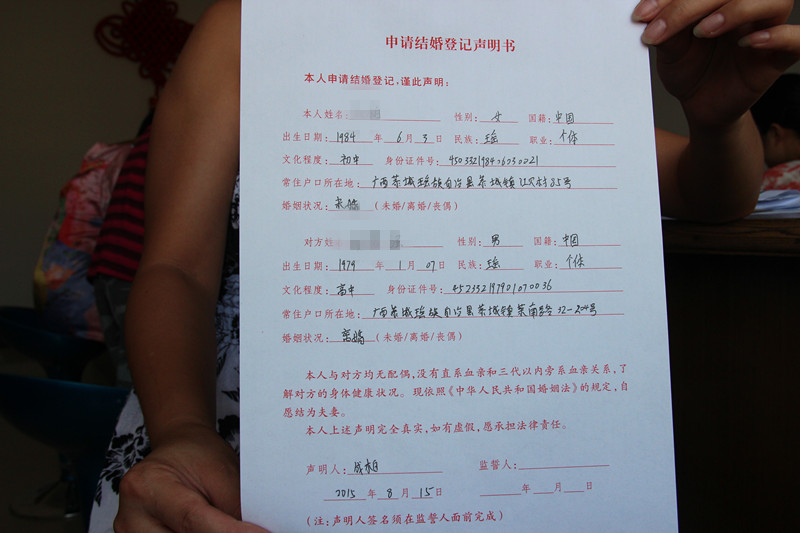 申请结婚登记声明书
本人申请结婚登记,谨此声明:
本人姓名: 性别: 女 国籍: 中国
出生日期: 1984 年 6 月 3 日 民族: 瑶 职业: 个体
文化程度: 初中 身份证件号:
常住户口所在地: 广西恭城瑶族自治县恭城镇 村85号
婚姻状况: (未婚/离婚/丧偶)
对方姓 性别: 男 国籍: 中国
出生日期: 1979 年 1 月 07 日 民族: 瑶 职业: 个体
文化程度: 高中 身份证件号: 452332197901070036
常住户口所在地: 广西恭城瑶族自治县恭城镇 南路32-204号
婚姻状况: 离婚 (未婚/离婚/丧偶)
本人与对方均无配偶,没有直系血亲和三代以内旁系血亲关系,了
解对方的身体健康状况。现依照《中华人民共和国婚姻法》的规定,自
愿结为夫妻。
本人上述声明完全真实,如有虚假,愿承担法律责任。
声明人: 监誓人:
2015 年 8 月 15 日 年 月 日
(注:声明人签名须在监誓人面前完成)